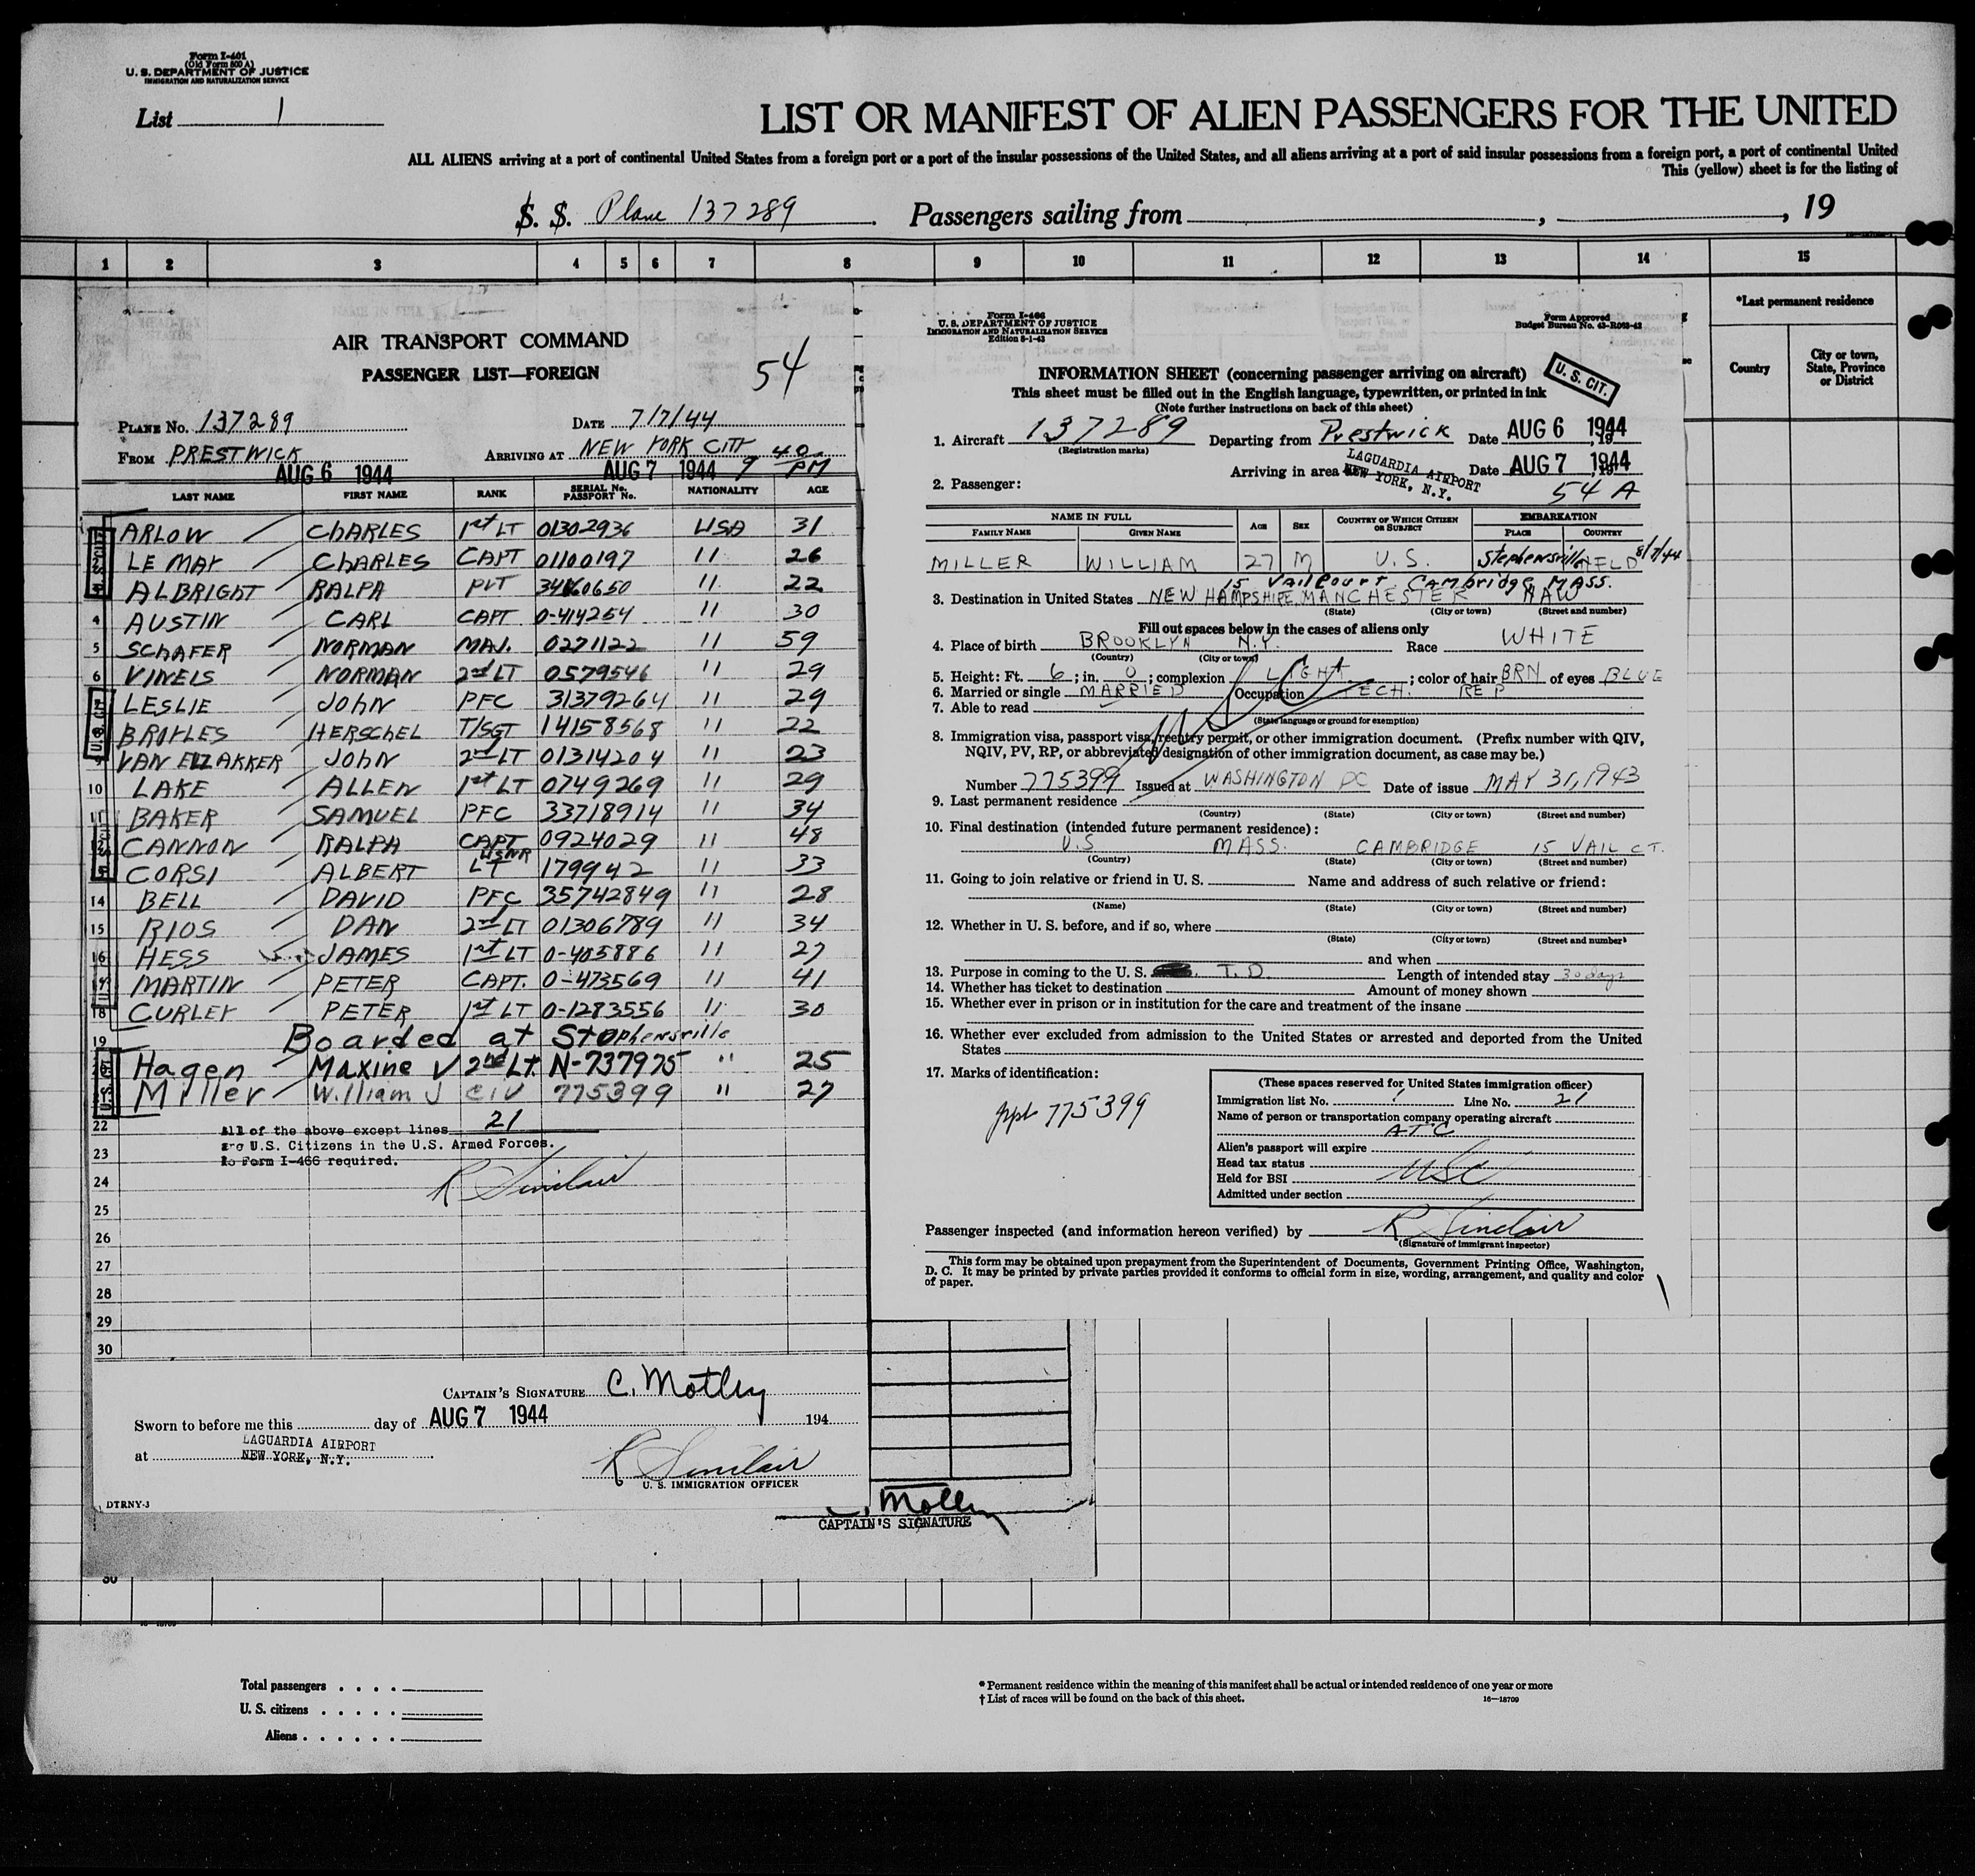 Form I-401
(Old Form 500 A)
U. S. DEPARTMENT OF JUSTICE
IMMIGRATION AND NATURALIZATION SERVICE
List 1
LIST OR MANIFEST OF ALIEN PASSENGERS FOR THE UNITED
ALL ALIENS arriving at a port of continental United States from a foreign port or a port of the insular possessions of the United States, and all aliens arriving at a port of said insular possessions from a foreign port, a port of continental United
This (yellow) sheet is for the listing of
S. S. Plane 137289 Passengers sailing from , , 19
1 2 3 4 5 6 7 8 9 10 11 12 13 14 15
*Last permanent residence
Country
City or town, State, Province or District
AIR TRANSPORT COMMAND
PASSENGER LIST—FOREIGN
54
PLANE NO. 137289 DATE 7/7/44
FROM PRESTWICK ARRIVING AT NEW YORK CITY
AUG 6 1944 AUG 7 1944 9 40 PM
LAST NAME FIRST NAME RANK SERIAL NO. PASSPORT NO. NATIONALITY AGE
ARLOW CHARLES 1st LT 01302936 USA 31
LE MAY CHARLES CAPT 01100197 " 26
ALBRIGHT RALPH PVT " 22
4 AUSTIN CARL CAPT. 0-414254 " 30
5 SCHAFER NORMAN MAJ. 0271122 " 59
6 VINELS NORMAN 2nd LT 0579546 " 29
LESLIE JOHN PFC 31379264 " 29
BROYLES HERSCHEL T/SGT 14158568 " 22
9 VAN ELZAKKER JOHN 2nd LT 01314204 " 23
10 LAKE ALLEN 1st LT 0749269 " 29
11 BAKER SAMUEL PFC 33718914 " 34
12 CANNON RALPH CAPT 0924029 " 48
CORSI ALBERT USNR LT 179942 " 33
14 BELL DAVID PFC 35742849 " 28
15 RIOS DAN 2nd LT 01306789 " 34
16 HESS JAMES 1st LT 0-405886 " 27
17 MARTIN PETER CAPT. 0-473569 " 41
18 CURLEY PETER 1st LT 0-1283556 " 30
19 Boarded at Stephensville
Hagen Maxine V 2nd LT. N-737975 " 25
Miller William J CIV 775399 " 27
22 All of the above except lines 21
are U.S. Citizens in the U.S. Armed Forces.
23 No Form I-466 required.
24 R Sinclair
25
26
27
28
29
30
CAPTAIN'S SIGNATURE C. Motley
Sworn to before me this day of AUG 7 1944 194
at LAGUARDIA AIRPORT
NEW YORK, N.Y.
R Sinclair
U. S. IMMIGRATION OFFICER
DTRNY-3
C. Motley
CAPTAIN'S SIGNATURE
30
Form I-466
U. S. DEPARTMENT OF JUSTICE
IMMIGRATION AND NATURALIZATION SERVICE
Edition 8-1-43
Form Approved
Budget Bureau No. 43-R063-43
U. S. CIT.
INFORMATION SHEET (concerning passenger arriving on aircraft)
This sheet must be filled out in the English language, typewritten, or printed in ink
(Note further instructions on back of this sheet)
1. Aircraft 137289 Departing from Prestwick Date AUG 6 1944
(Registration marks)
Arriving in area LAGUARDIA AIRPORT NEW YORK, N.Y. Date AUG 7 1944
2. Passenger: 54 A
NAME IN FULL
FAMILY NAME GIVEN NAME AGE SEX COUNTRY OF WHICH CITIZEN OR SUBJECT EMBARKATION PLACE COUNTRY
MILLER WILLIAM 27 M U.S. Stephensville NFLD 8/7/44
15 Vail Court Cambridge MASS.
3. Destination in United States NEW HAMPSHIRE MANCHESTER
(State) (City or town) (Street and number)
Fill out spaces below in the cases of aliens only
4. Place of birth BROOKLYN N.Y. Race WHITE
(Country) (City or town)
5. Height: Ft. 6 ; in. 0 ; complexion LIGHT ; color of hair BRN of eyes BLUE
6. Married or single MARRIED Occupation TECH. REP
7. Able to read
(State language or ground for exemption)
USC
8. Immigration visa, passport visa, reentry permit, or other immigration document. (Prefix number with QIV,
NQIV, PV, RP, or abbreviated designation of other immigration document, as case may be.)
Number 775399 Issued at WASHINGTON DC Date of issue MAY 31, 1943
9. Last permanent residence
(Country) (State) (City or town) (Street and number)
10. Final destination (intended future permanent residence):
U.S MASS. CAMBRIDGE 15 VAIL CT.
(Country) (State) (City or town) (Street and number)
11. Going to join relative or friend in U. S. Name and address of such relative or friend:
(Name) (State) (City or town) (Street and number)
12. Whether in U. S. before, and if so, where
(State) (City or town) (Street and number)
and when
13. Purpose in coming to the U. S. T. D Length of intended stay 30 days
14. Whether has ticket to destination Amount of money shown
15. Whether ever in prison or in institution for the care and treatment of the insane
16. Whether ever excluded from admission to the United States or arrested and deported from the United
States
17. Marks of identification:
ppt 775399
(These spaces reserved for United States immigration officer)
Immigration list No. 1 Line No. 21
Name of person or transportation company operating aircraft
ATC
Alien's passport will expire
Head tax status
Held for BSI USC
Admitted under section
Passenger inspected (and information hereon verified) by R Sinclair
(Signature of immigrant inspector)
This form may be obtained upon prepayment from the Superintendent of Documents, Government Printing Office, Washington,
D. C. It may be printed by private parties provided it conforms to official form in size, wording, arrangement, and quality and color
of paper.
Total passengers . . . .
U. S. citizens . . . . .
Aliens . . . . . .
* Permanent residence within the meaning of this manifest shall be actual or intended residence of one year or more
† List of races will be found on the back of this sheet.
16—18709